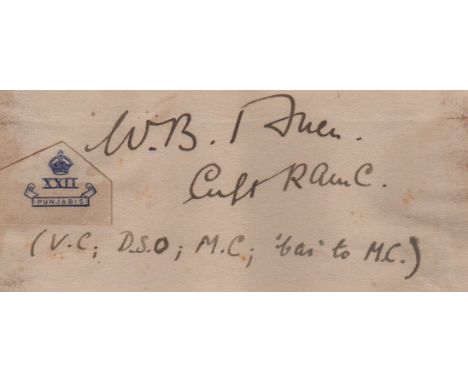 W.B. Allen.
Capt RAMC.
XXII
PUNJABIS
(V.C; D.S.O; M.C; 'bar' to M.C.)